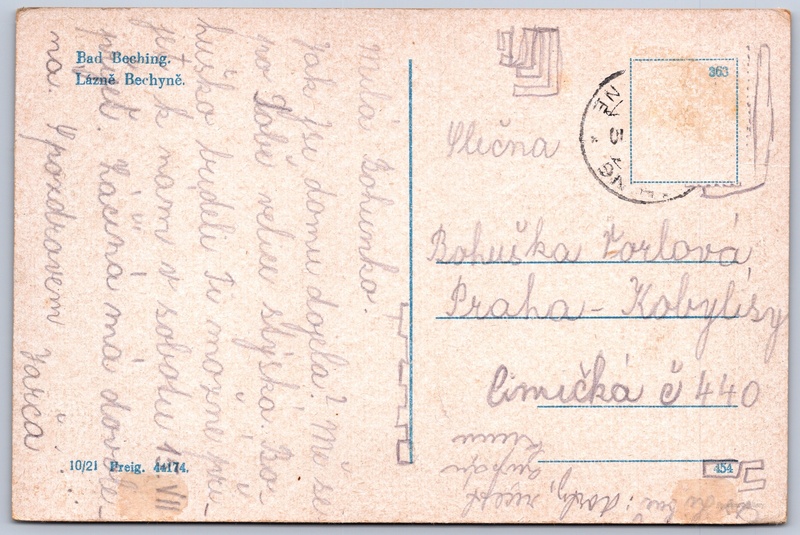 Bad Beching.
Lázně Bechyně.
Milá Bohunko.
Jak jsi domů dojela? Mě se
po Tobě velice stýská. Bo-
huško budeli Ti možné při-
jít k nám v sobotu 15. VII
přijeď. Začíná má dovole-
ná. S pozdravem Jarča
10/21 Preig. 44174.
363
Slečna
Bohuška Vorlová
Praha - Kobylisy
Čimická č 440
454